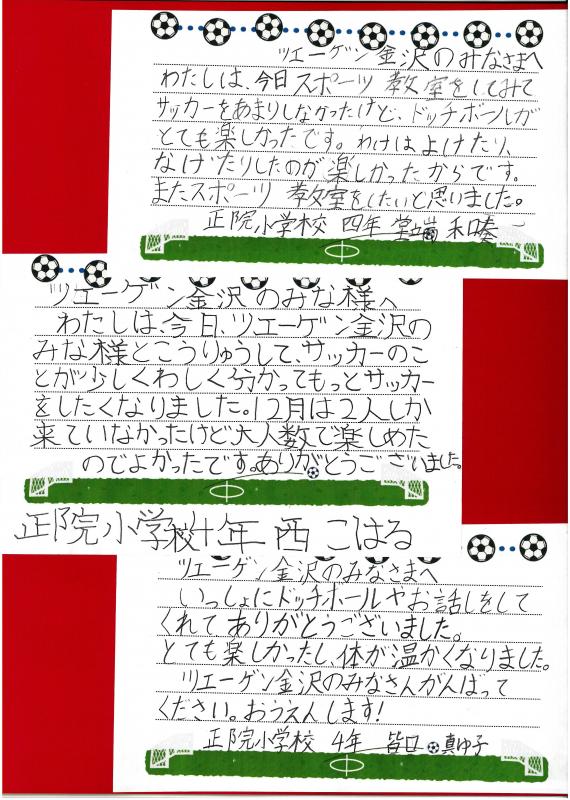 ツエーゲン金沢のみなさまへ
わたしは、今日スポーツ教室をしてみて
サッカーをあまりしなかったけど、ドッチボールが
とても楽しかったです。わけはよけたり、
なげたりしたのが楽しかったからです。
またスポーツ教室をしたいと思いました。
正院小学校 四年 堂端 和奏
ツエーゲン金沢のみな様へ
わたしは、今日、ツエーゲン金沢の
みな様とこうりゅうして、サッカーのこ
とが少しくわしく分かってもっとサッカー
をしたくなりました。12月は2人しか
来ていなかったけど大人数で楽しめた
のでよかったです。ありがとうございました。
正院小学校 年 西 こはる
ツエーゲン金沢のみなさまへ
いっしょにドッチボールやお話しをして
くれてありがとうございました。
とても楽しかったし、体が温かくなりました。
ツエーゲン金沢のみなさんがんばって
ください。おうえんします!
正院小学校 4年 皆口 真ゆ子